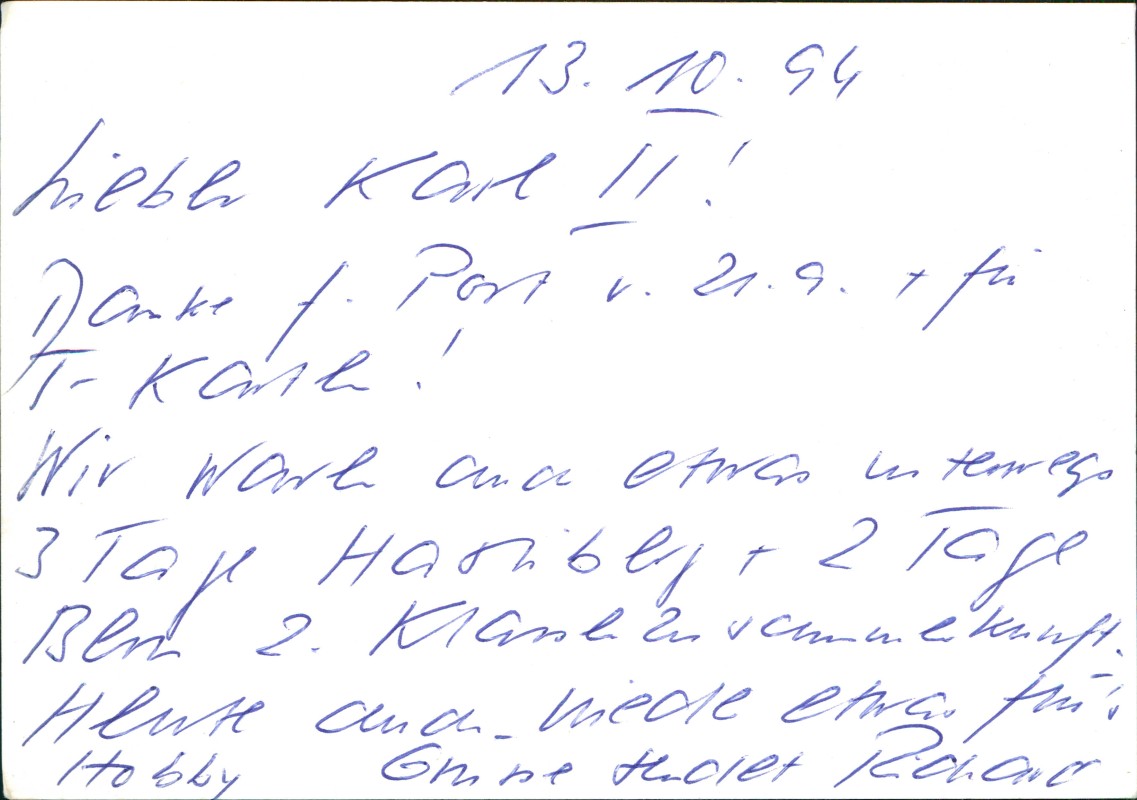 13. 10. 94
Lieber Karl II!
Danke f. Post v. 21.9. + für
T-Karten!
Wir waren auch etwas unterwegs
3 Tage Hasliberg + 2 Tage
Bern 2. Klassenzusammenkunft.
Heute auch wieder etwas für's
Hobby Grüsse sendet Richard